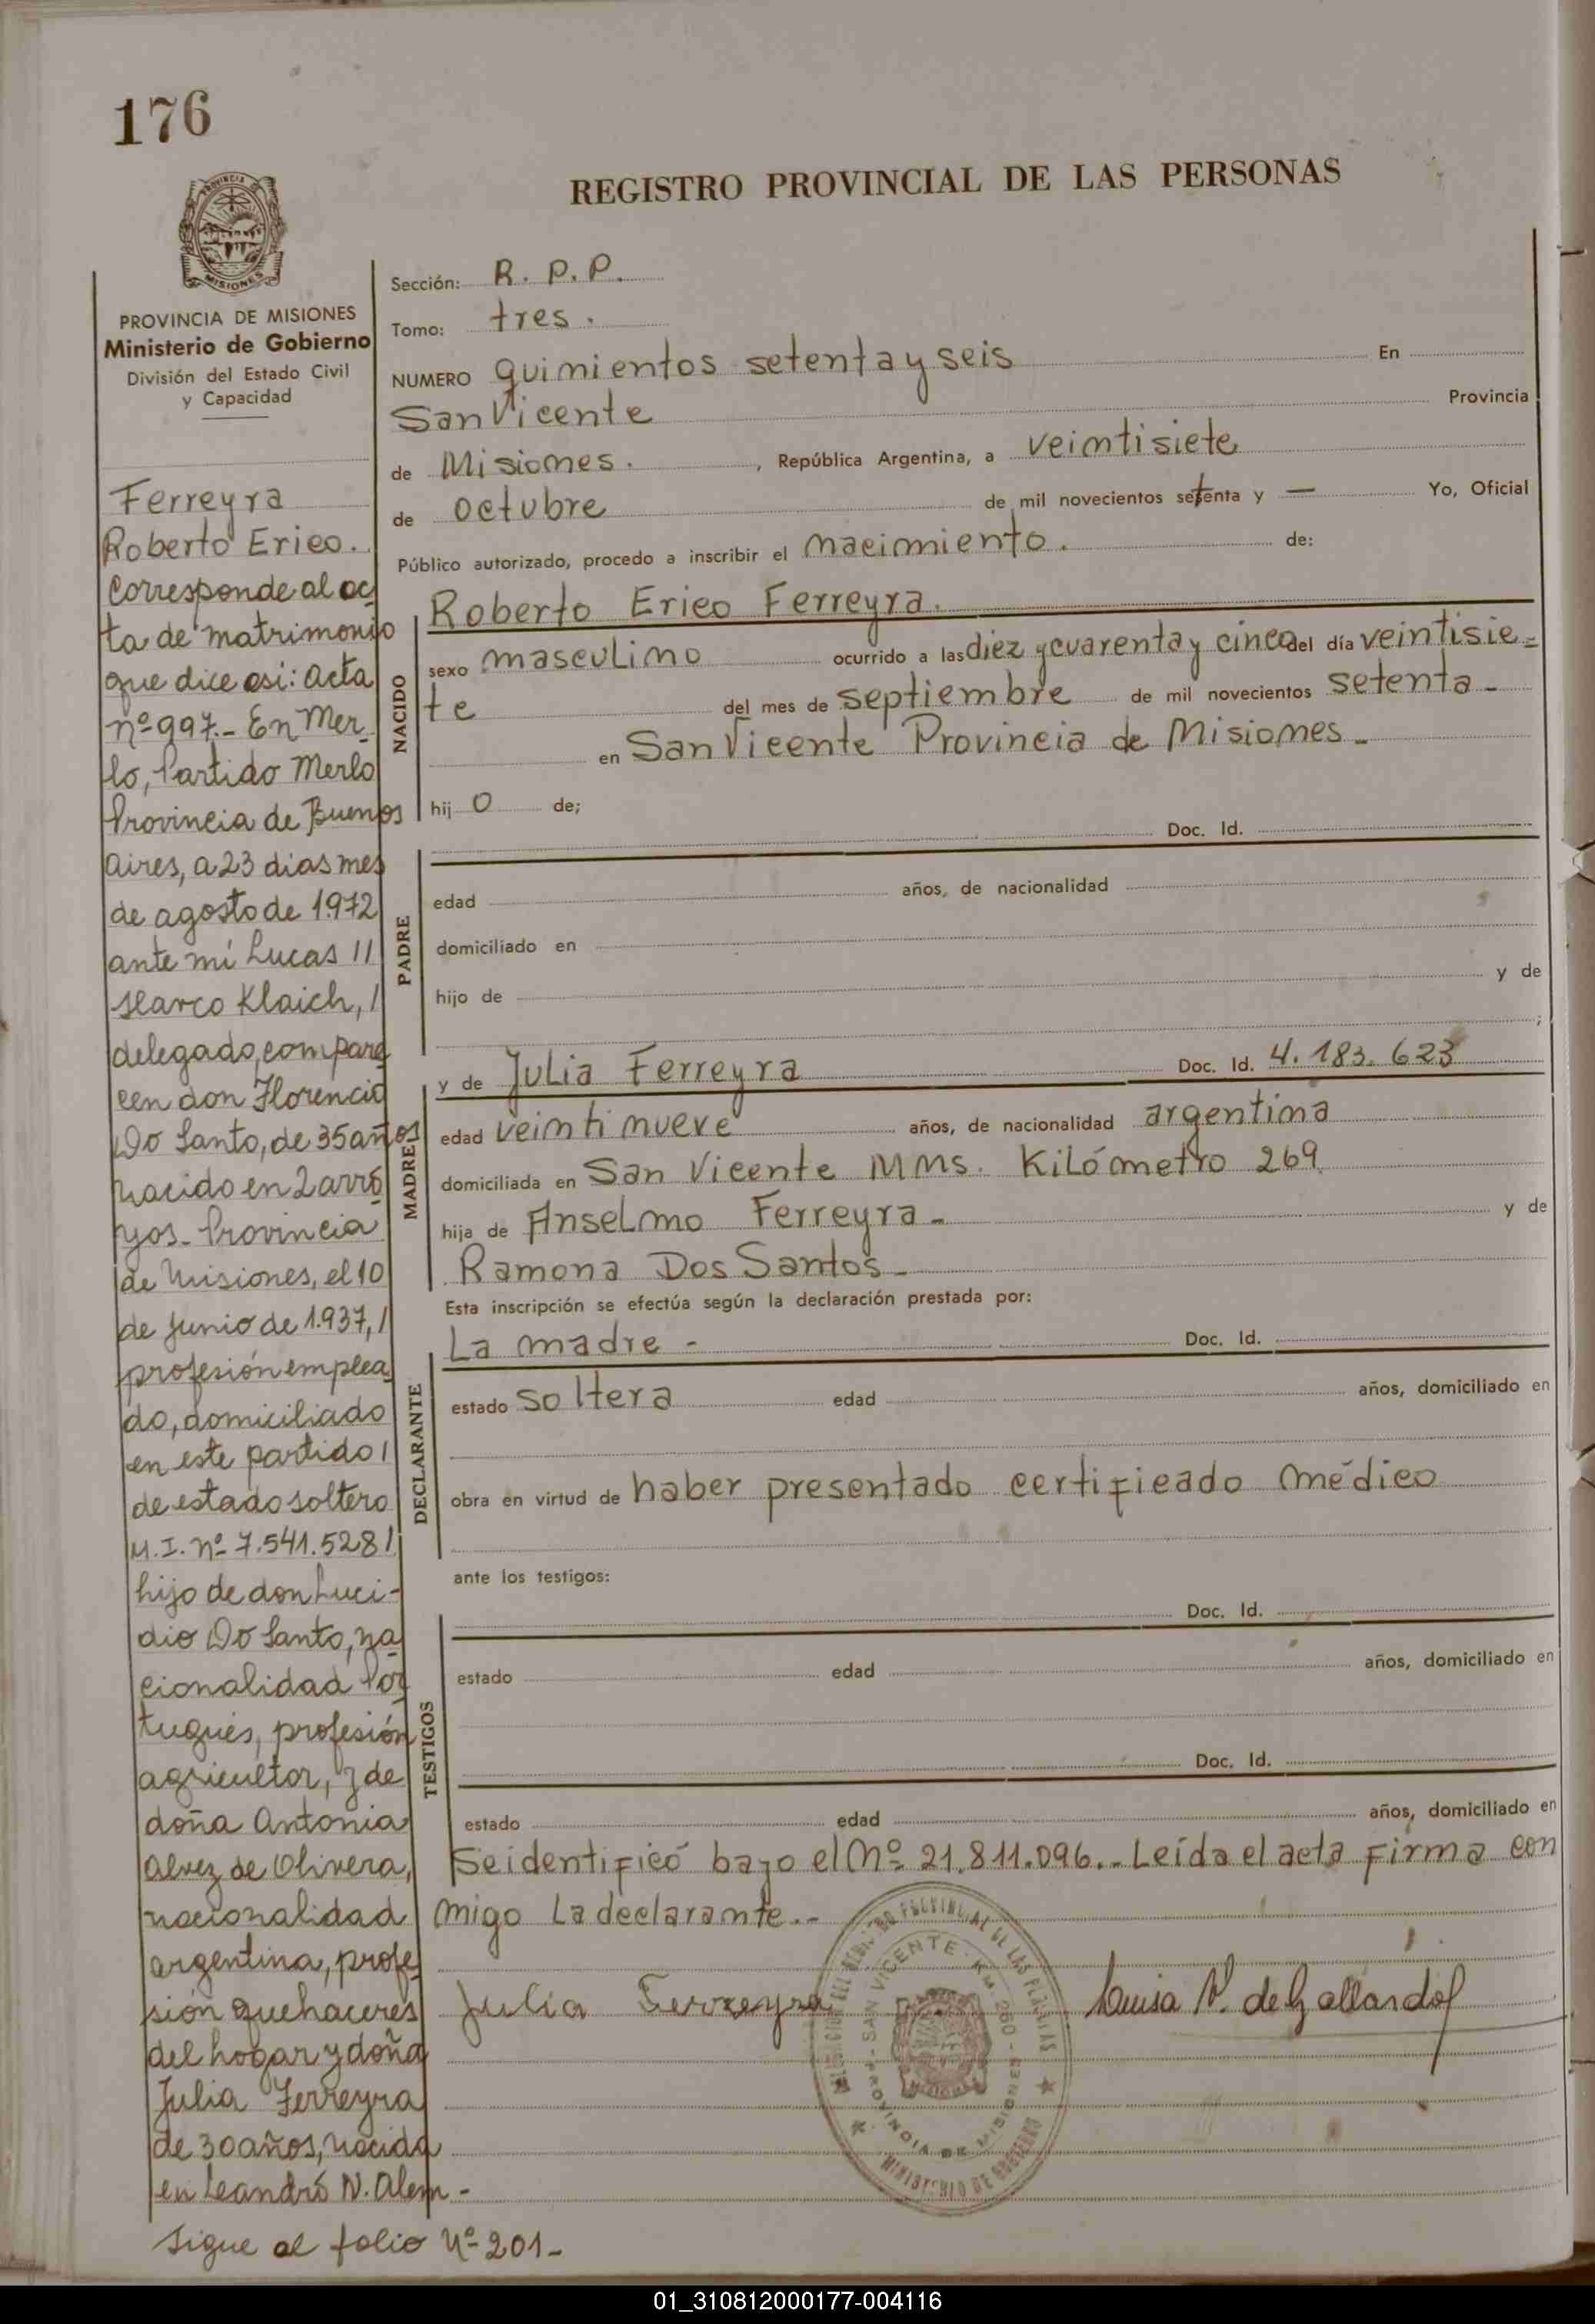 176
REGISTRO PROVINCIAL DE LAS PERSONAS
PROVINCIA
MISIONES
PROVINCIA DE MISIONES
Ministerio de Gobierno
División del Estado Civil
y Capacidad
Ferreyra
Roberto Erico.
Corresponde al ac
ta de matrimonio
que dice asi: acta
nº 997.- En Mer
lo, Partido Merlo
Provincia de Buenos
Aires, a 23 dias mes
de agosto de 1.972
ante mí Lucas //
Marco Klaich, /
delegado, compare
cen don Florencio
Do Santo, de 35 años
nacido en 2 arro
yos - Provincia
de Misiones, el 10
de Junio de 1.937, /
profesión emplea
do, domiciliado
en este partido /
de estado soltero
M. I. nº 7.541.528 /
hijo de don Luci-
dio Do Santo, na
cionalidad Por
tugués, profesión
agricultor, y de
doña Antonia
Alvez de Olivera,
nacionalidad
argentina, profe
sión quehaceres
del hogar y doña
Julia Ferreyra
de 30 años, nacida
en Leandro N. Alem -
Sigue al folio Nº 201-
Sección: R. P. P.
Tomo: tres.
NUMERO quinientos setenta y seis En
San Vicente Provincia
de Misiones. , República Argentina, a veintisiete
de octubre de mil novecientos setenta y — Yo, Oficial
Público autorizado, procedo a inscribir el nacimiento. de:
NACIDO
Roberto Erico Ferreyra.
sexo masculino ocurrido a las diez y cuarenta y cinco del día veintisie-
te del mes de septiembre de mil novecientos setenta-
en San Vicente Provincia de Misiones-
hij o de;
Doc. Id.
PADRE
edad años, de nacionalidad
domiciliado en
hijo de y de
;
MADRE
y de Julia Ferreyra Doc. Id. 4.183.623
edad veintinueve años, de nacionalidad argentina
domiciliada en San Vicente Mnes. Kilómetro 269
hija de Anselmo Ferreyra- y de
Ramona Dos Santos-
Esta inscripción se efectúa según la declaración prestada por:
DECLARANTE
La madre - Doc. Id.
estado soltera edad años, domiciliado en
obra en virtud de haber presentado certificado médico
ante los testigos:
TESTIGOS
Doc. Id.
estado edad años, domiciliado en
Doc. Id.
estado edad años, domiciliado en
Se identificó bajo el Nº 21.811.096.- Leída el acta firma con
migo la declarante.-
Julia Ferreyra
Luisa V. de Gallardo
SAN VICENTE - KM. 260 -
PROVINCIA DE MISIONES
MINISTERIO DE GOBIERNO
01_310812000177-004116